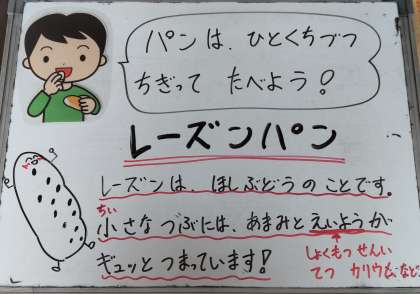 パンは、ひとくちづつ
ちぎって たべよう!
レーズンパン
レーズンは、ほしぶどうのことです。
ちい
小さなつぶには、あまみとえいようが
ギュッとつまっています!
しょくもつせんい
てつ カリウム、など